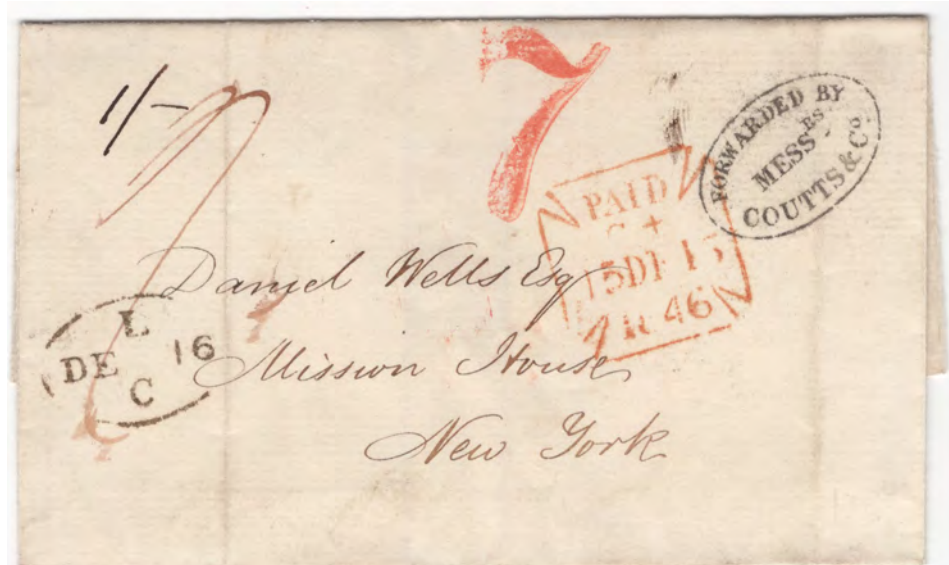 1/-
7
FORWARDED BY
MESSRS
COUTTS & Co.
PAID
15 DE 15
46
Daniel Wells Esq
L
DE 16
C
Mission House
New York